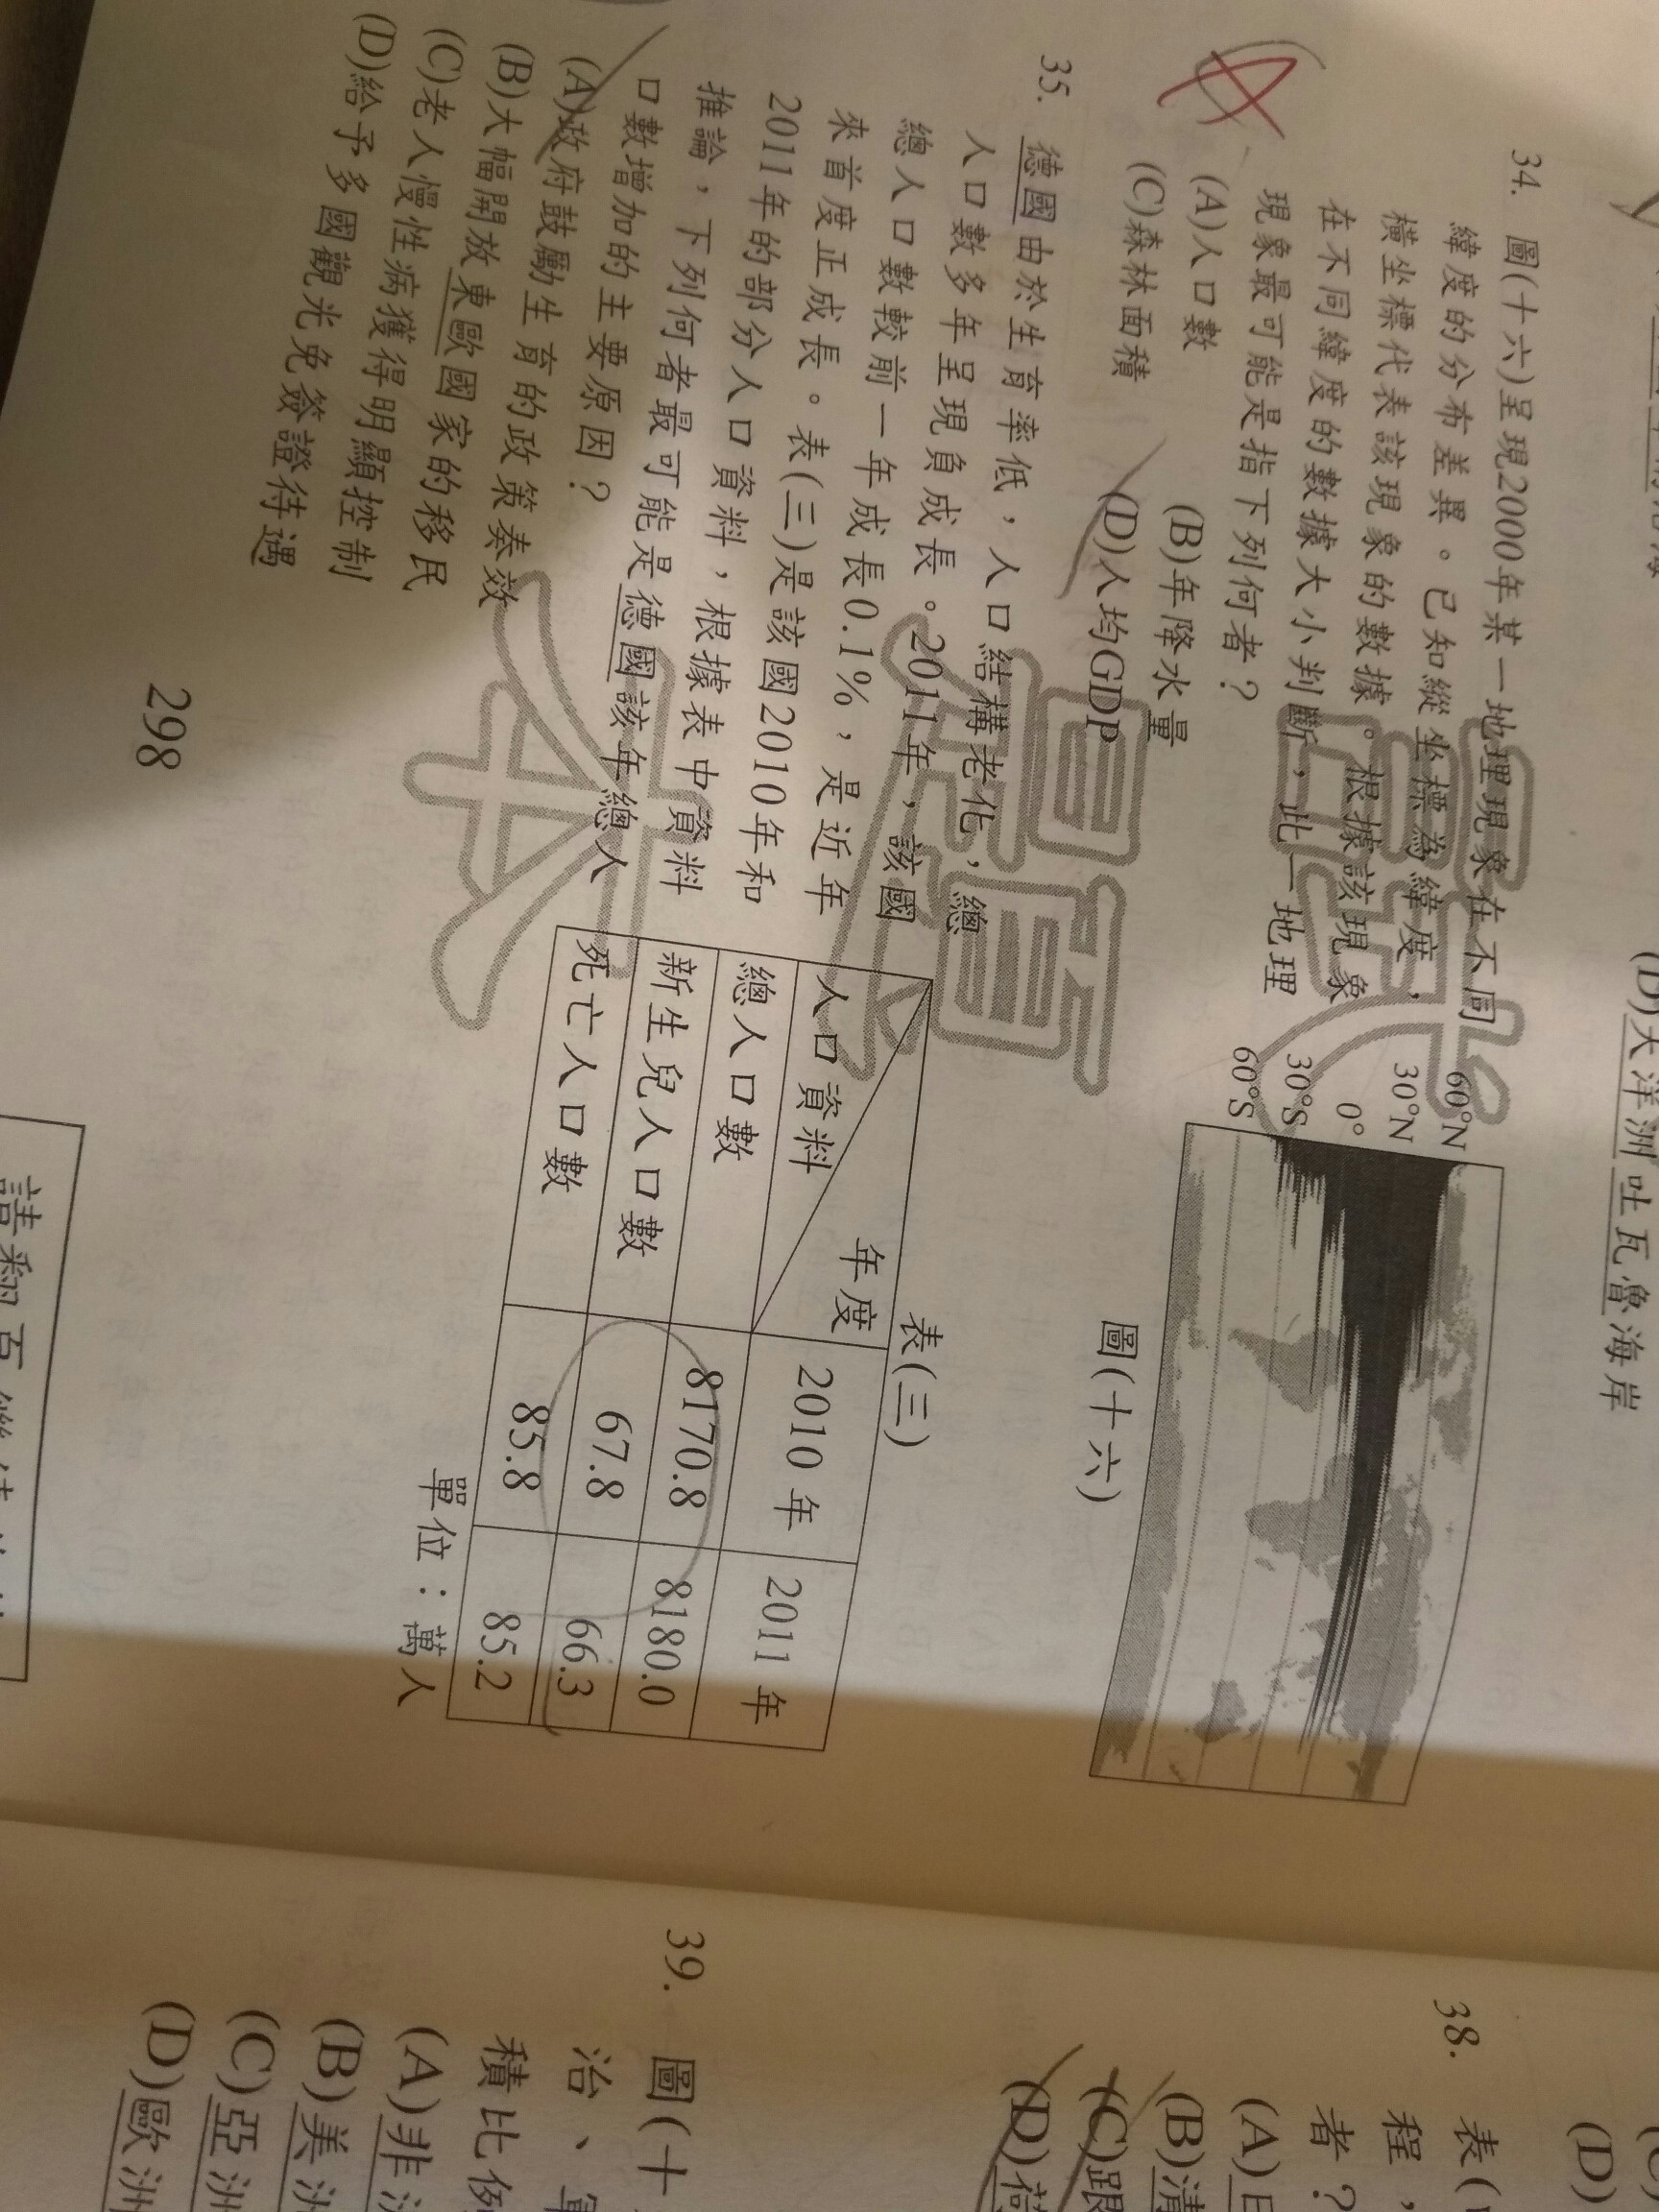 (D)大洋洲吐瓦魯海岸
34. 圖(十六)呈現2000年某一地理現象在不同
緯度的分布差異。已知縱坐標為緯度，
橫坐標代表該現象的數據。根據該現象
在不同緯度的數據大小判斷，此一地理
現象最可能是指下列何者？
(A)人口數
(B)年降水量
(C)森林面積
(D)人均GDP
60°N
30°N
0°
30°S
60°S
圖(十六)
35. 德國由於生育率低，人口結構老化，總
人口數多年呈現負成長。2011年，該國
總人口數較前一年成長0.1%，是近年
來首度正成長。表(三)是該國2010年和
2011年的部分人口資料，根據表中資料
推論，下列何者最可能是德國該年總人
口數增加的主要原因？
(A)政府鼓勵生育的政策奏效
(B)大幅開放東歐國家的移民
(C)老人慢性病獲得明顯控制
(D)給予多國觀光免簽證待遇
表(三)
年度
人口資料
2010 年 2011 年
總人口數 8170.8 8180.0
新生兒人口數 67.8 66.3
死亡人口數 85.8 85.2
單位：萬人
298
請翻頁繼續
(D)
38. 表(
程，
者？
(A)
(B)清
(C)跟
(D)荷
39. 圖(十
治、
積比例
(A)非
(B)美洲
(C)亞洲
(D)歐洲